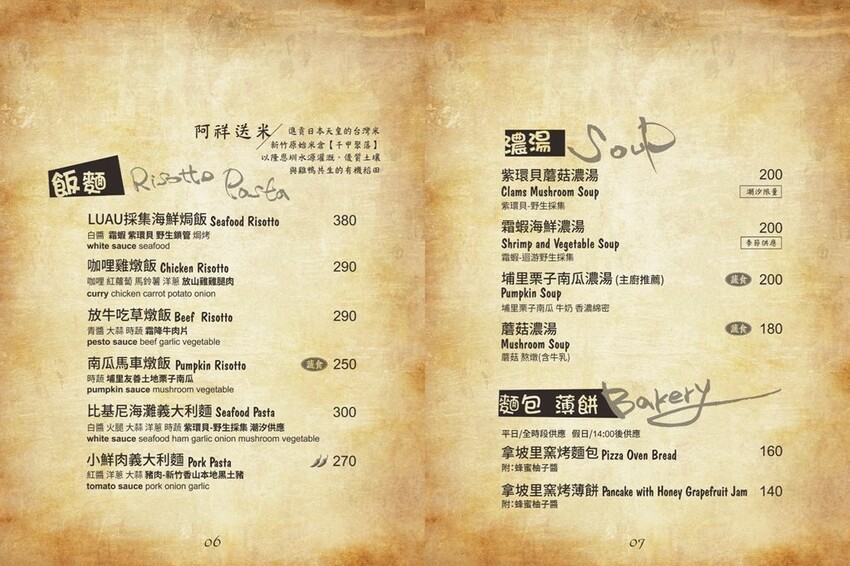 阿祥送米／進貢日本天皇的台灣米
新竹原始米倉【千甲聚落】
以隆恩圳水源灌溉，優質土壤
與雞鴨共生的有機稻田
飯麵 Risotto Pasta
LUAU採集海鮮焗飯 Seafood Risotto 380
白醬 霜蝦 紫環貝 野生鎖管 焗烤
white sauce seafood
咖哩雞燉飯 Chicken Risotto 290
咖哩 紅蘿蔔 馬鈴薯 洋蔥 放山雞雞腿肉
curry chicken carrot potato onion
放牛吃草燉飯 Beef Risotto 290
青醬 大蒜 時蔬 霜降牛肉片
pesto sauce beef garlic vegetable
南瓜馬車燉飯 Pumpkin Risotto 蔬食 250
時蔬 埔里友善土地栗子南瓜
pumpkin sauce mushroom vegetable
比基尼海灘義大利麵 Seafood Pasta 300
白醬 火腿 大蒜 洋蔥 時蔬 紫環貝-野生採集 潮汐供應
white sauce seafood ham garlic onion mushroom vegetable
小鮮肉義大利麵 Pork Pasta 270
紅醬 洋蔥 大蒜 豬肉-新竹香山本地黑土豬
tomato sauce pork onion garlic
06
濃湯 Soup
紫環貝蘑菇濃湯 200
Clams Mushroom Soup 潮汐限量
紫環貝-野生採集
霜蝦海鮮濃湯 200
Shrimp and Vegetable Soup 季節供應
霜蝦-迴游野生採集
埔里栗子南瓜濃湯 (主廚推薦) 蔬食 200
Pumpkin Soup
埔里栗子南瓜 牛奶 香濃綿密
蘑菇濃湯 蔬食 180
Mushroom Soup
蘑菇 熬燉(含牛乳)
麵包 薄餅 Bakery
平日/全時段供應 假日/14:00後供應
拿坡里窯烤麵包 Pizza Oven Bread 160
附:蜂蜜柚子醬
拿坡里窯烤薄餅 Pancake with Honey Grapefruit Jam 140
附:蜂蜜柚子醬
07